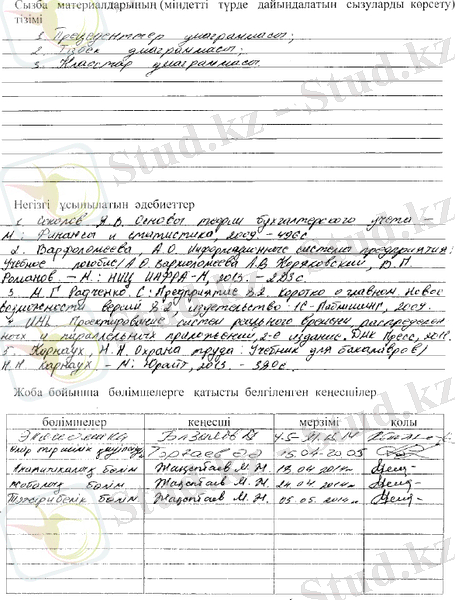 Сызба материалдарының (міндетті түрде дайындалатын сызуларды көрсету)
тізімі
1. Прецеденттер диаграммасы;
2. Тізбек диаграммасы;
3. Кластар диаграммасы
Негізгі ұсынылатын әдебиеттер
1. Соколов Я.В. Основы теории бухгалтерского учета –
М: Финансы и статистика, 2009 - 496с
2. Варфоломеева, А.О. Информационные системы предприятия:
Учебное пособие / А.О. Варфоломеева, А.В. Коряковский, В.П.
Романов. – М: НИЦ ИНФРА-М, 2013. – 283с.
3. М.Г. Радченко. 1С: Предприятие 8.2. Коротко о главном. Новые
возможности версии 8.2 издательство: 1С-Паблишинг, 2009.
4. UML Проектирование систем реального времени, распределен
ных и параллельных приложений, 2-е издание. ДМК Пресс, 2011.
5. Карнаух, Н.Н. Охрана труда: Учебник для бакалавров /
Н.Н. Карнаух. – М: Юрайт, 2013. – 380с.
Жоба бойынша бөлімшелерге қатысты белгіленген кеңесшілер
бөлімшелер кеңесші мерзімі қолы
Экономика
Өмір тіршілік 15.04.
Аналитикалық бөлім Жақыпбаев М.Ж. 18.04
Жобалық бөлім Жақыпбаев М.Ж. 24.04
Тәжірибелік бөлім Жақыпбаев М.Ж. 05.05
Stud.kz – Stud.kz